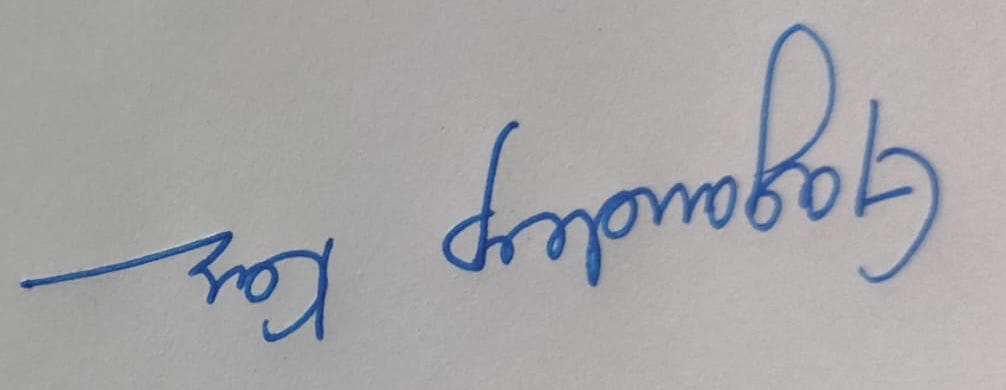 Gagandeep Kaur